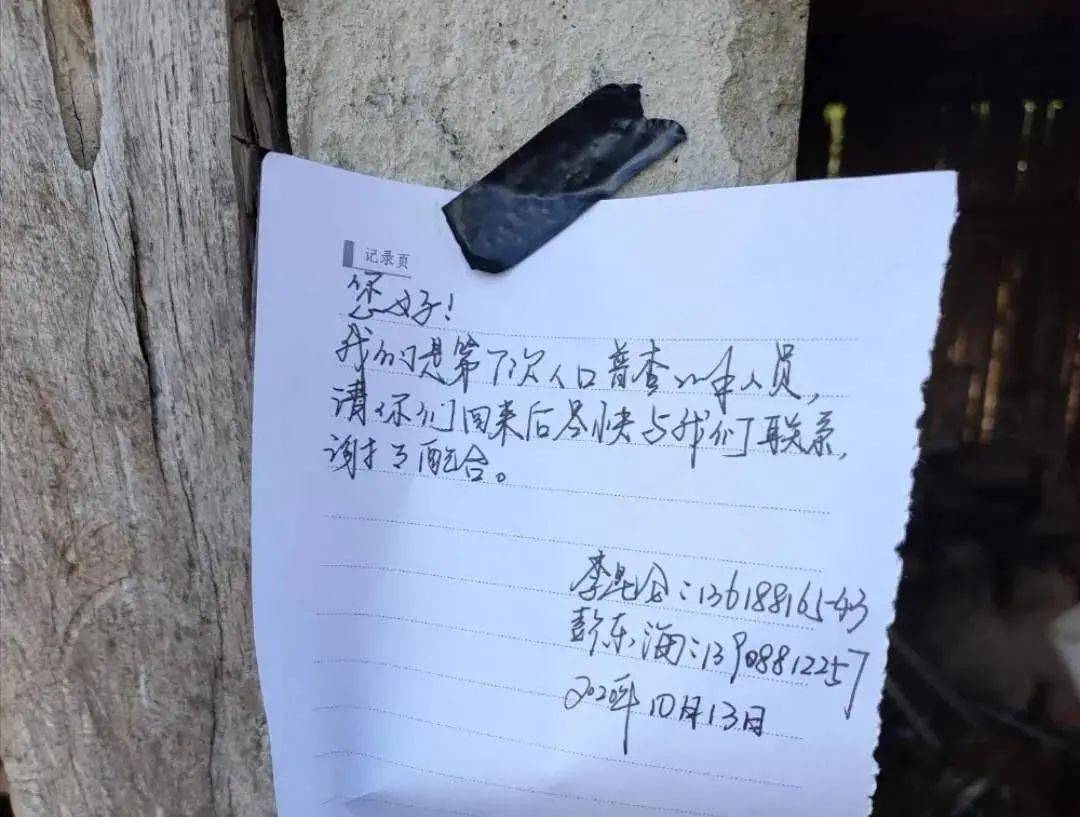 记录页
您好!
我们是第7次人口普查工作人员,
请你们回来后尽快与我们联系,
谢谢了配合。
李昆伦:13618816543
彭东海:13908812257
2020年10月13日